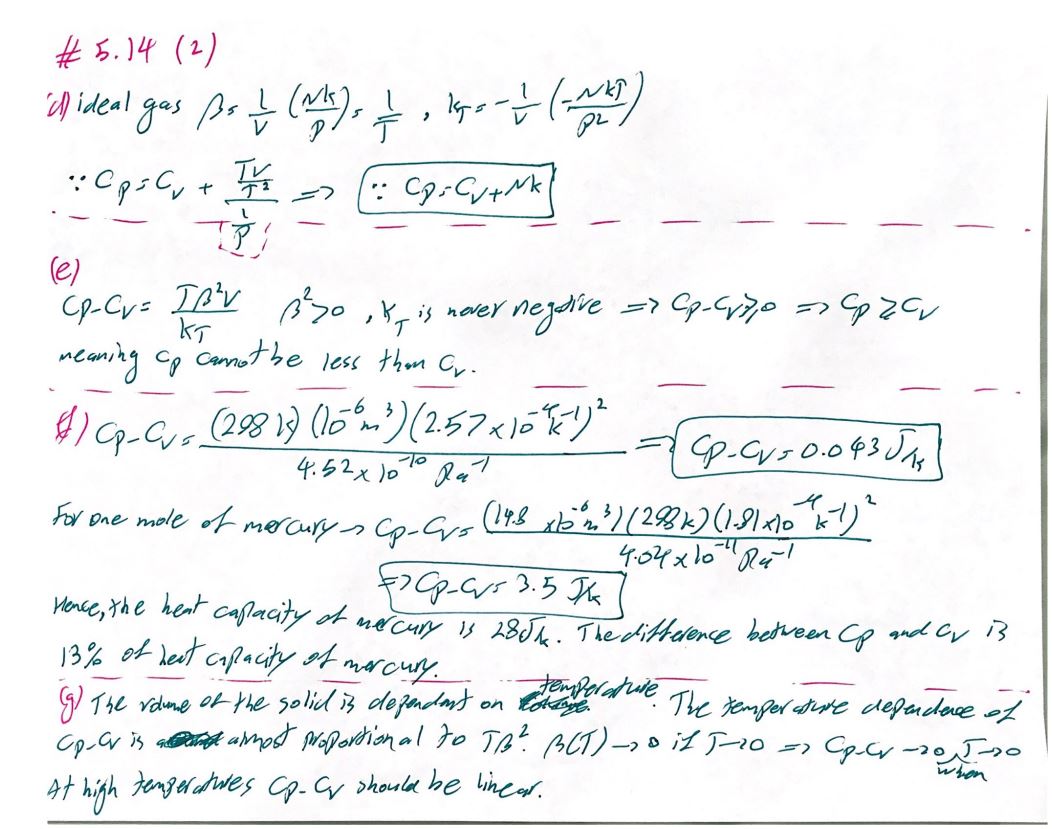 # 5.14 (2)
(d) ideal gas β = 1/V (Nk/P) = 1/T , kT = -1/V (-NkT/P²)
∵ Cp = Cv + (TV/T²)/(1/P) => ∵ Cp = Cv + Nk
(e)
Cp-Cv = Tβ²V/kT β²>0 , kT is never negative => Cp-Cv≥0 => Cp ≥ Cv
meaning Cp cannot be less than Cv.
(f) Cp-Cv = (298 k) (10⁻⁶ m³) (2.57 x 10⁻⁴ k⁻¹)² / 4.52 x 10⁻¹⁰ Pa⁻¹ => Cp-Cv = 0.043 J/k
For one mole of mercury -> Cp-Cv = (14.8 x10⁻⁶ m³) (298 k) (1.81 x10⁻⁴ k⁻¹)² / 4.04 x 10⁻¹¹ Pa⁻¹
=> Cp-Cv = 3.5 J/k
Hence, the heat capacity of mercury is 28 J/k. The difference between Cp and Cv is
13% of heat capacity of mercury.
(g) The volume of the solid is dependant on temperature. The temperature dependence of
Cp-Cv is almost proportional to Tβ². β(T) -> 0 if T->0 => Cp-Cv ->0 when T->0
At high temperatures Cp-Cv should be linear.